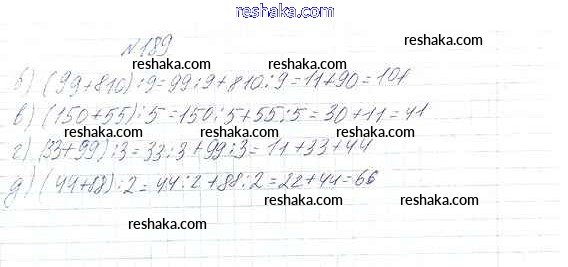 reshaka.com
№189
reshaka.com reshaka.com
б) (99+810):9=99:9+810:9=11+90=101
reshaka.com reshaka.com
в) (150+55):5=150:5+55:5=30+11=41
reshaka.com reshaka.com
г) (33+99):3=33:3+99:3=11+33+44
reshaka.com reshaka.com
д) (44+88):2=44:2+88:2=22+44=66
reshaka.com
reshaka.com